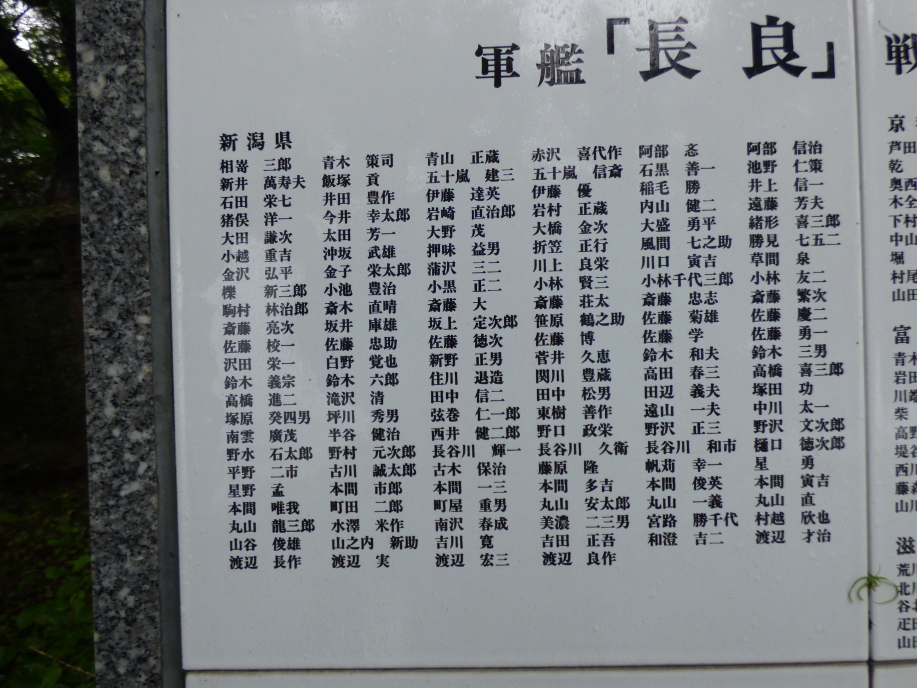 軍艦「長良」
新潟県
相嵜 三郎 青木 策司 青山 正蔵 赤沢 喜代作 阿部 忞 阿部 信治
新井 萬寿夫 飯塚 貢 五十嵐 建三 五十嵐 信斎 石黒 善一 池野 仁策
石田 栄七 井田 豊作 伊藤 達英 伊藤 優 稲毛 勝 井上 信一
猪俣 洋一 今井 幸太郎 岩崎 直治郎 岩村 正蔵 内山 健二 遠藤 芳夫
大田 謙次 太田 芳一 大野 茂 大橋 金次 大盛 勇平 緒形 喜三郎
小越 重吉 沖坂 武雄 押味 益男 折笠 正行 風間 七之助 勝見 七五二
金沢 弘平 金子 栄太郎 蒲沢 三二 川上 良栄 川口 寅吉 草間 泉
櫟 新三郎 小池 豊治 小黒 正二 小林 賢三 小林千代三郎 小林 友二
駒村 林治郎 斎木 直晴 斎藤 大 斎藤 荘太 斎藤 忠志 斎藤 繁次
斎藤 亮次 坂井 庫雄 坂上 定次郎 笹原 鶴之助 佐藤 菊雄 佐藤 慶二
佐藤 校一 佐藤 忠助 佐藤 徳次 佐藤 博 佐藤 学 佐藤 勇一
沢田 栄一 白野 覚也 新野 正男 菅井 久恵 鈴木 和夫 鈴木 三男
鈴木 義宗 鈴木 六郎 住川 退造 関川 豊蔵 高田 春三 高橋 喜三郎
高橋 進二 滝沢 清 田中 信二 田中 松男 田辺 義夫 塚田 功
塚原 癸四男 坪川 秀男 弦巻 仁一郎 東樹 善作 遠山 一夫 中川 太一
南雲 廣茂 半谷 健治 西井 健二郎 野口 政栄 野沢 正三 野沢 文次郎
野水 石太郎 野村 元次郎 長谷川 輝一 長谷川 久衛 長谷川 和市 樋口 徳次郎
平野 二市 古川 誠太郎 古木 保治 藤原 隆 帆苅 幸一 星 勇
星野 孟 本間 市郎 本間 一三 本間 多吉 本間 俊英 本間 寅吉
本間 唯我 町田 二郎 町屋 重男 丸山 安太郎 丸山 一義 丸山 直
丸山 龍三郎 水澤 米作 南沢 春成 美濃 二三男 宮路 勝千代 村越 欣也
山谷 俊雄 山之内 新助 吉川 寛 吉田 正吾 和澄 吉二 渡辺 才治
渡辺 長作 渡辺 実 渡辺 宏三 渡辺 良作
戦
京
芦田
乾
奥西
木全
下村
中山
堀
村尾
山田
富
青木
岩田
川端
柴
高野
堤谷
西川
藤森
山川
滋
荒川
北川
谷北
疋田
山田